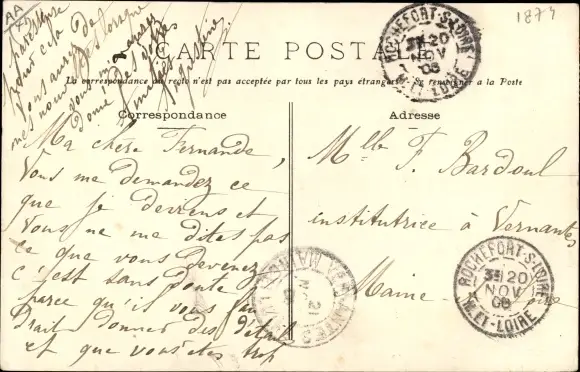 AA
1874
CARTE POSTALE
La correspondance au recto n'est pas acceptée par tous les pays étrangers. Se renseigner à la Poste
Correspondance
Ma chère Fernande,
Vous me demandez ce
que je deviens et
Vous ne me dites pas
ce que vous devenez
c'est sans doute
parce qu'il vous fau
drait donner des détails
et que vous êtes trop
paresseuse
pour cela. De
vous aurez
mes nouvelles lorsque
Adresse
Mlle F. Bardoul
institutrice à Vernantes
Maine-Loire
ROCHEFORT-S-LOIRE
3E 20
NOV
08
M.-ET-LOIRE
ROCHEFORT-S-LOIRE
3E 20
NOV
08
M.-ET-LOIRE